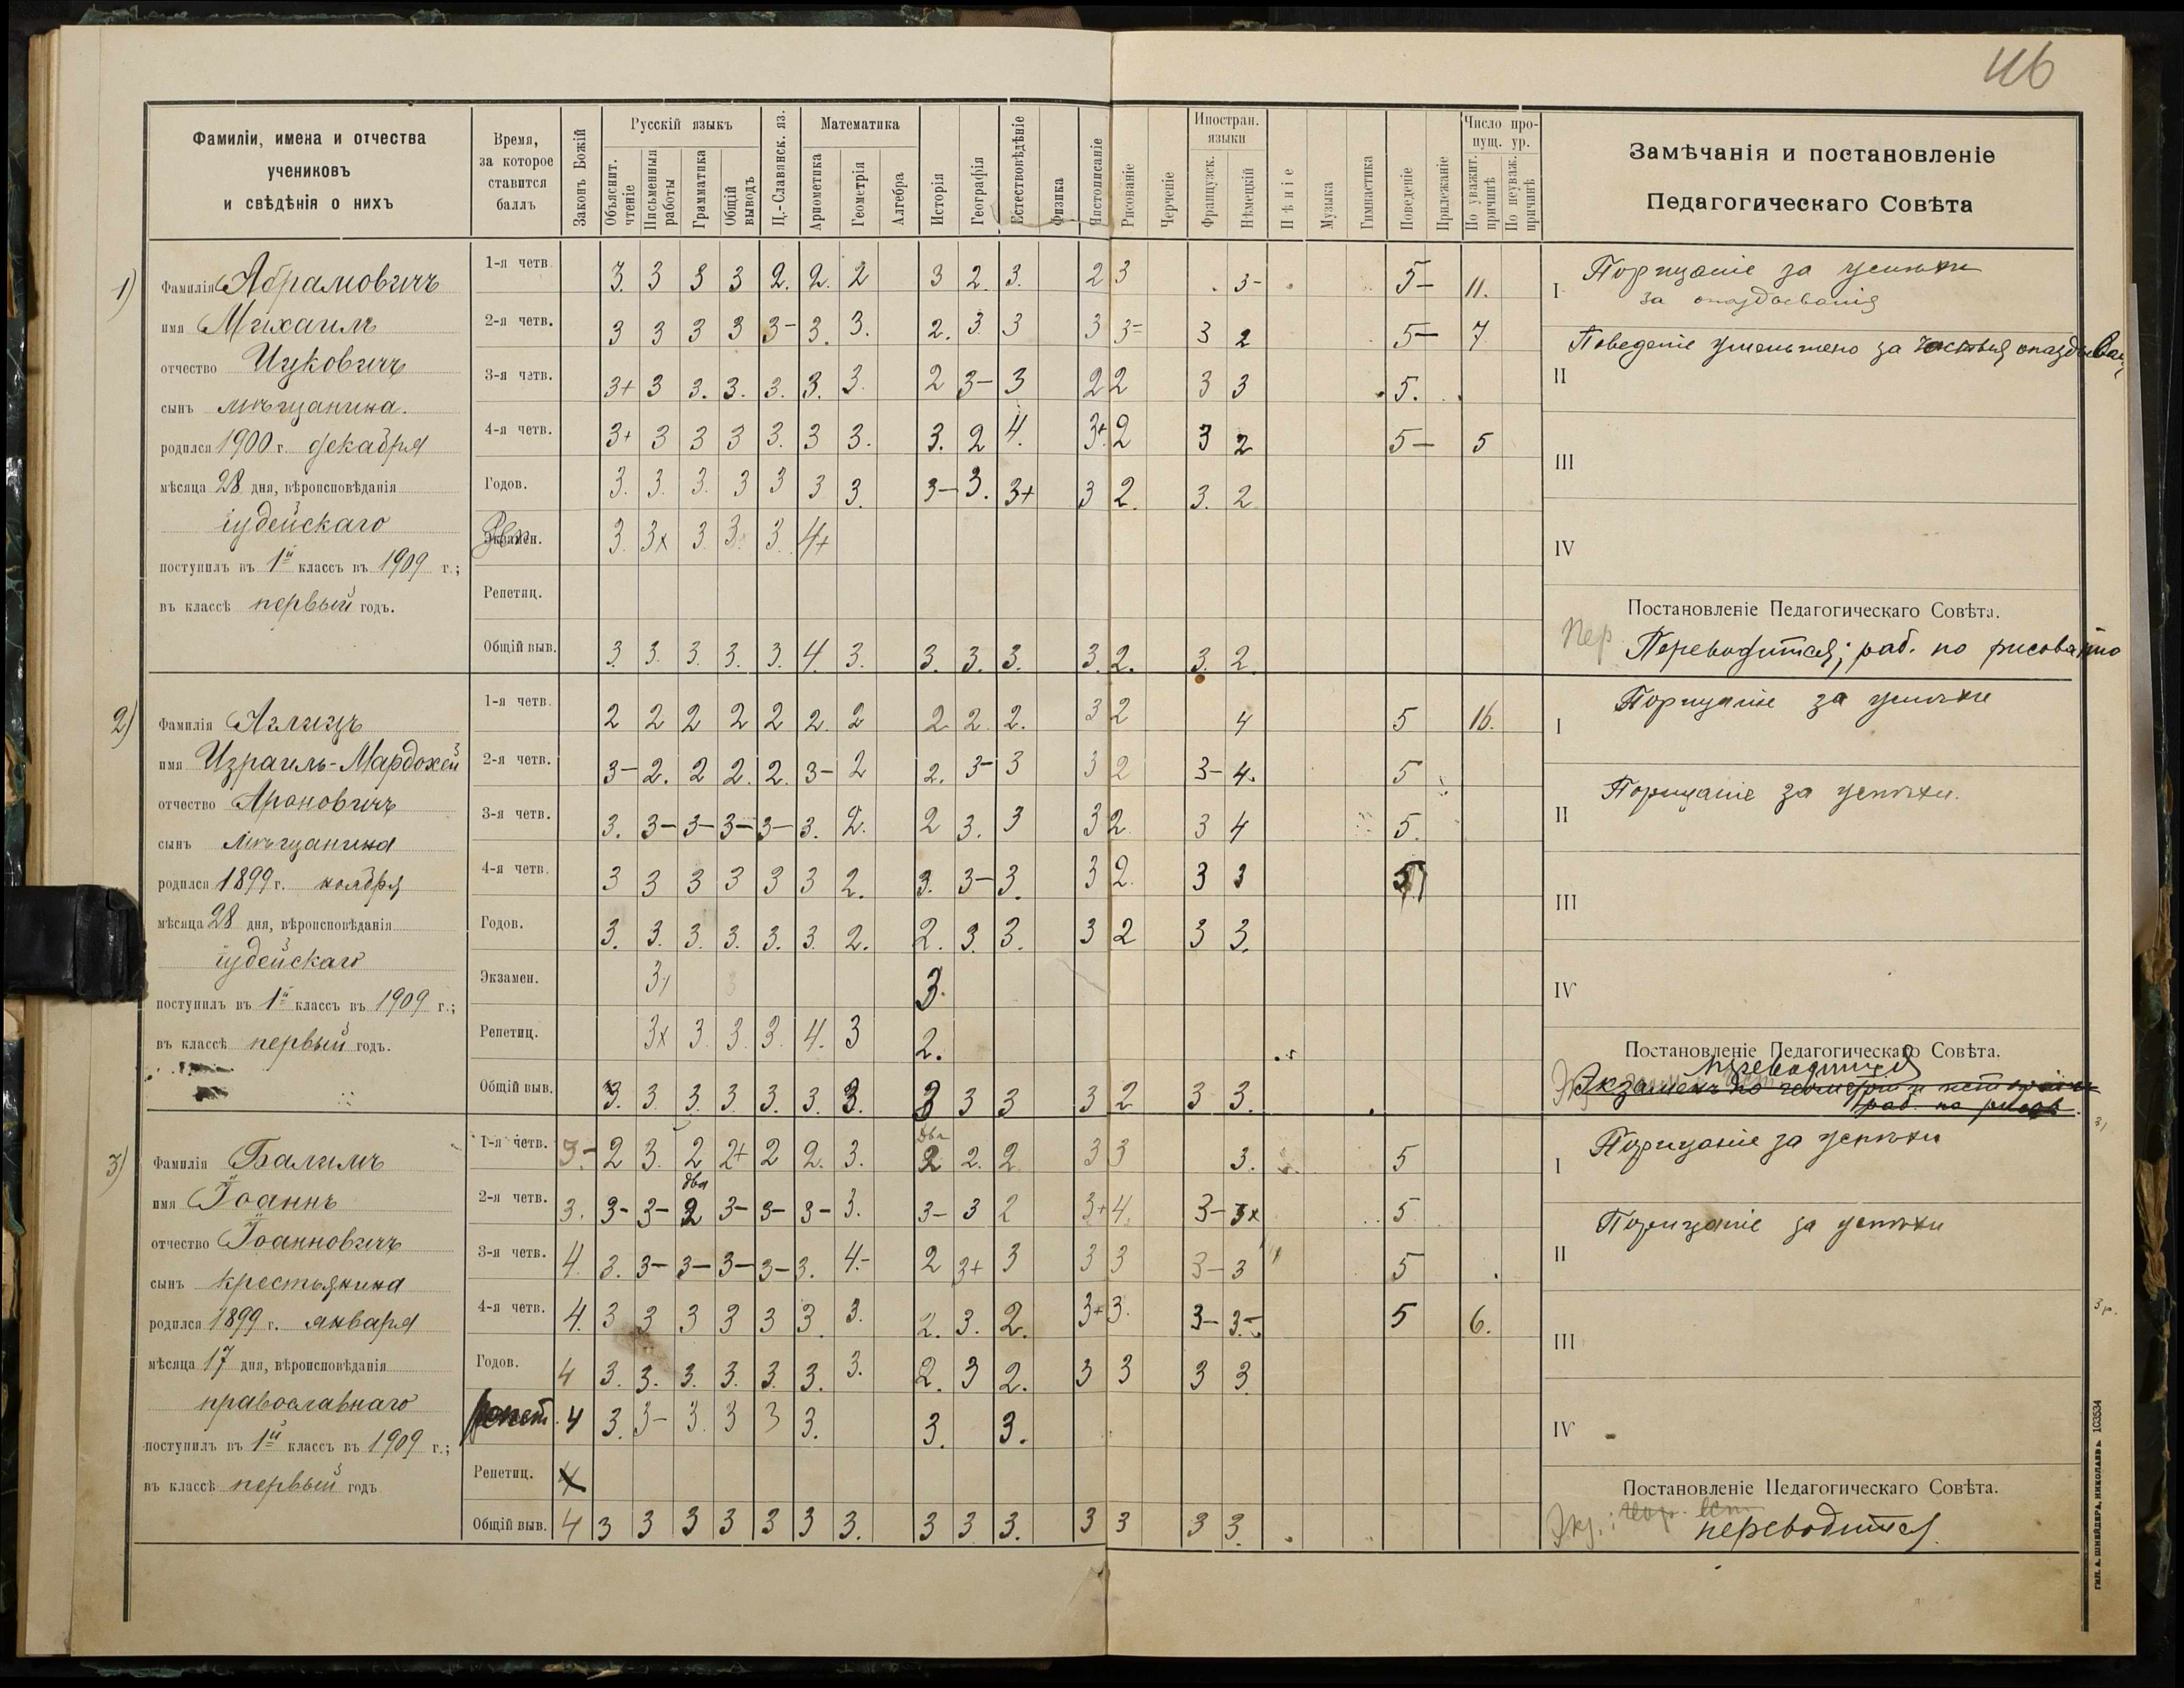 46
Фамиліи, имена и отчества
учениковъ
и свѣдѣнія о нихъ
Время,
за которое
ставится
баллъ
Законъ Божій
Русскій языкъ
Объяснит. чтеніе
Письменныя работы
Грамматика
Общій выводъ
Ц.-Славянск. яз.
Математика
Ариѳметика
Геометрія
Алгебра
Исторія
Географія
Естествовѣдѣніе
Физика
Чистописаніе
Рисованіе
Черченіе
Иностран. языки
Французск.
Нѣмецкій
Пѣніе
Музыка
Гимнастика
Поведеніе
Прилежаніе
Число про-
пущ. ур.
По уважит. причинѣ
По неуваж. причинѣ
Замѣчанія и постановленіе
Педагогическаго Совѣта
1)
Фамилія Абрамовичъ
имя Михаилъ
отчество Ицковичъ
сынъ мѣщанина.
родился 1900 г. декабря
мѣсяца 28 дня, вѣроисповѣданія
іудейскаго
поступилъ въ 1й классъ въ 1909 г.;
въ классѣ первый годъ.
1-я четв. 3. 3 3 3 2. 2. 2 3 2. 3. 2 3 3- 5- 11.
2-я четв. 3 3 3 3 3- 3. 3. 2. 3. 3 3 3= 3 2 5- 7
3-я четв. 3+ 3 3. 3. 3. 3. 3. 2 3- 3 2 2 3 3 5.
4-я четв. 3+ 3 3 3 3. 3 3. 3. 2 4. 3+ 2 3 2 5- 5
Годов. 3. 3. 3. 3 3 3 3. 3- 3. 3+ 3 2. 3. 2
Экзамен. 3. 3x 3. 3. 3. 4+
Репетиц.
Общій выв. 3. 3. 3. 3. 3. 4. 3. 3. 3. 3. 3. 2. 3. 2.
I Порицаніе за успѣхи
за опаздыванія
II Поведеніе уменьшено за частыя
III
IV
Постановленіе Педагогическаго Совѣта.
Пер. Переводится; раб. по рисованію
2)
Фамилія Аглицъ
имя Израиль-Мардохей
отчество Ароновичъ
сынъ мѣщанина
родился 1899 г. ноября
мѣсяца 28 дня, вѣроисповѣданія
іудейскаго
поступилъ въ 1й классъ въ 1909 г.;
въ классѣ первый годъ.
1-я четв. 2 2 2 2 2 2. 2 2 2. 2. 3 2 4 5 16.
2-я четв. 3- 2. 2 2. 2. 3- 2 2. 3- 3 3 2 3- 4. 5
3-я четв. 3. 3- 3- 3- 3- 3. 2. 2 3. 3 3 2. 3 4 5.
4-я четв. 3 3 3 3 3 3 2. 3. 3- 3. 3 2. 3 3 5
Годов. 3. 3. 3. 3. 3. 3. 2. 2. 3. 3. 3 2 3 3.
Экзамен. 3. 3.
Репетиц. 3x 3. 3. 3. 4. 3 2.
Общій выв. 3. 3. 3. 3. 3. 3. 3. 3 3 3 3 2 3 3.
I Порицаніе за успѣхи
II Порицаніе за успѣхи.
III
IV
Постановленіе Педагогическаго Совѣта.
переводится
Экзаменъ по геометріи и исторіи
раб. по рисов.
3)
Фамилія Балимъ
имя Іоаннъ
отчество Іоанновичъ
сынъ крестьянина
родился 1899 г. января
мѣсяца 17 дня, вѣроисповѣданія
православнаго
поступилъ въ 1й классъ въ 1909 г.;
въ классѣ первый годъ
1-я четв. 3- 2 3. 2 2+ 2 2. 3. два 2 2. 2 3 3 3. 5
2-я четв. 3. 3- 3- два 2 3- 3- 3- 3. 3- 3 2 3+ 4. 3- 3x 5
3-я четв. 4. 3. 3- 3- 3- 3- 3. 4.- 2 3+ 3 3 3 3- 3 5
4-я четв. 4. 3 3 3 3 3 3. 3. 2. 3. 2. 3+ 3. 3- 3.- 5 6.
Годов. 4 3. 3. 3. 3. 3. 3. 3. 2. 3 2. 3 3 3 3
репет. 4 3. 3- 3. 3 3 3. 3. 3.
Репетиц. 4
Общій выв. 4 3 3 3 3 3 3 3. 3 3 3. 3 3 3 3.
I Порицаніе за успѣхи
II Порицаніе за успѣхи
III
IV
Постановленіе Педагогическаго Совѣта.
Экз.:
переводится.
ТИП. А. ШНЕЙДЕРА, НИКОЛАЕВЪ. 103534